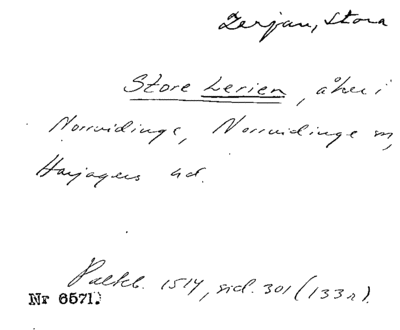 Lerjan, Stora
Store Lerien, åker i
Norrvidinge, Norrvidinge sn,
Harjagers hd.
Palteb. 1514, sid. 301 (133r).
Nr 6571.